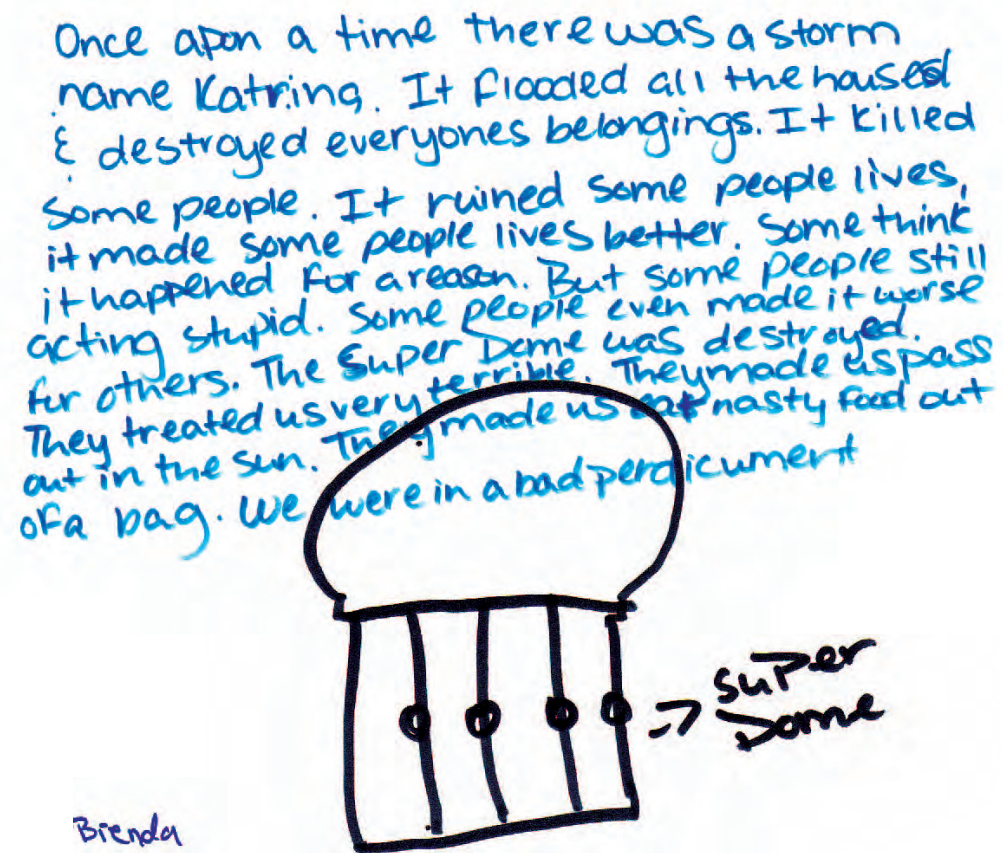 Once apon a time there was a storm
name Katrina. It flooded all the housed
& destroyed everyones belongings. It killed
some people. It ruined some people lives,
it made some people lives better. Some think
it happened for a reason. But some people still
acting stupid. Some people even made it worse
for others. The Super Dome was destroyed.
They treated us very terrible. They made us pass
out in the sun. They made us eat nasty food out
of a bag. We were in a bad perdicument
Super
Dome
Brenda